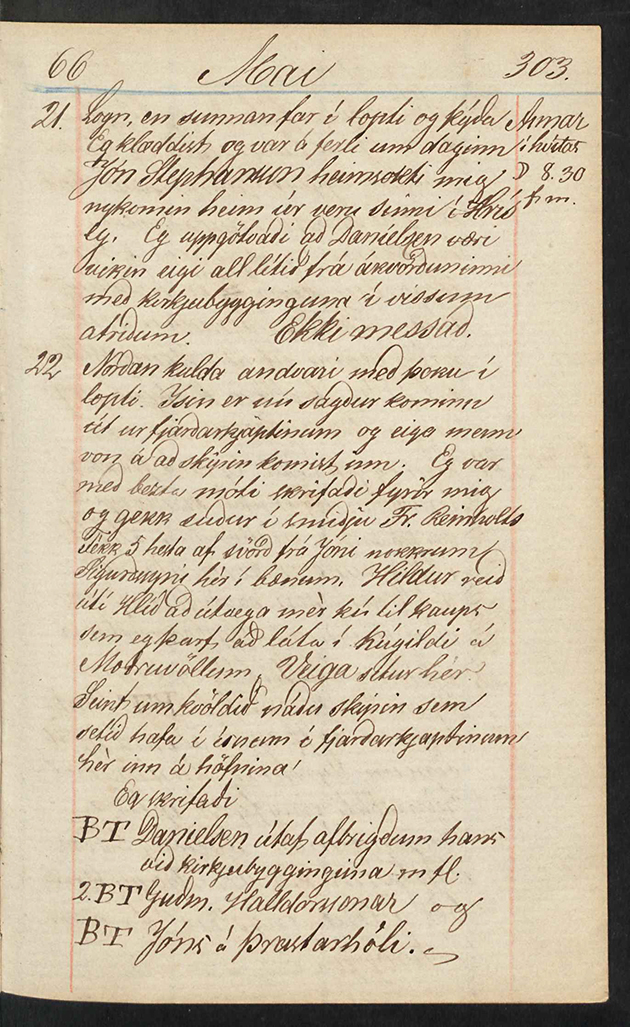 66 Mai 303.
21. Logn, en sunnanfar í lopti og þýða
Eg klæddist og var á ferli um daginn
Jón Stephansson heimsókti mig
nýkomin heim úr veru sinni í Hrís
ey. Eg uppgötvaði að Danielsen væri
vikin eigi all lítið frá ákvörðuninni
með kirkjubygginguna í vissum
atriðum. Ekki messað.
Annar
í hvítas
8.30
f.m.
22 Norðan kulda andvari með þoku í
lopti. Ísin er nú sagður kominn
út ur fjarðarkjaptinum og eiga menn
von á að skipin komist inn. Eg var
með bezta móti skrifaði fyrir mig
og gekk suður í smiðju Fr. Reinholts
Fékk 5 hesta af svörð frá Jóni nokkrum
Sigurðssyni hér í bænum. Hildur reið
útí Hlíð að útvega mér kú til kaups
sem eg þarf að láta í kúgildi á
Möðruvöllum. Veiga situr hér.
Seint um kvöldið náðu skipin sem
setið hafa í ísnum í fjarðarkjaptinum
hér inn á höfnina!
Eg skrifaði
BT Danielsen útaf afbrigðum hans
við kirkjubygginguna m fl.
2. BT Guðm. Halldórssonar og
BT Jóns á Þrastarhóli.